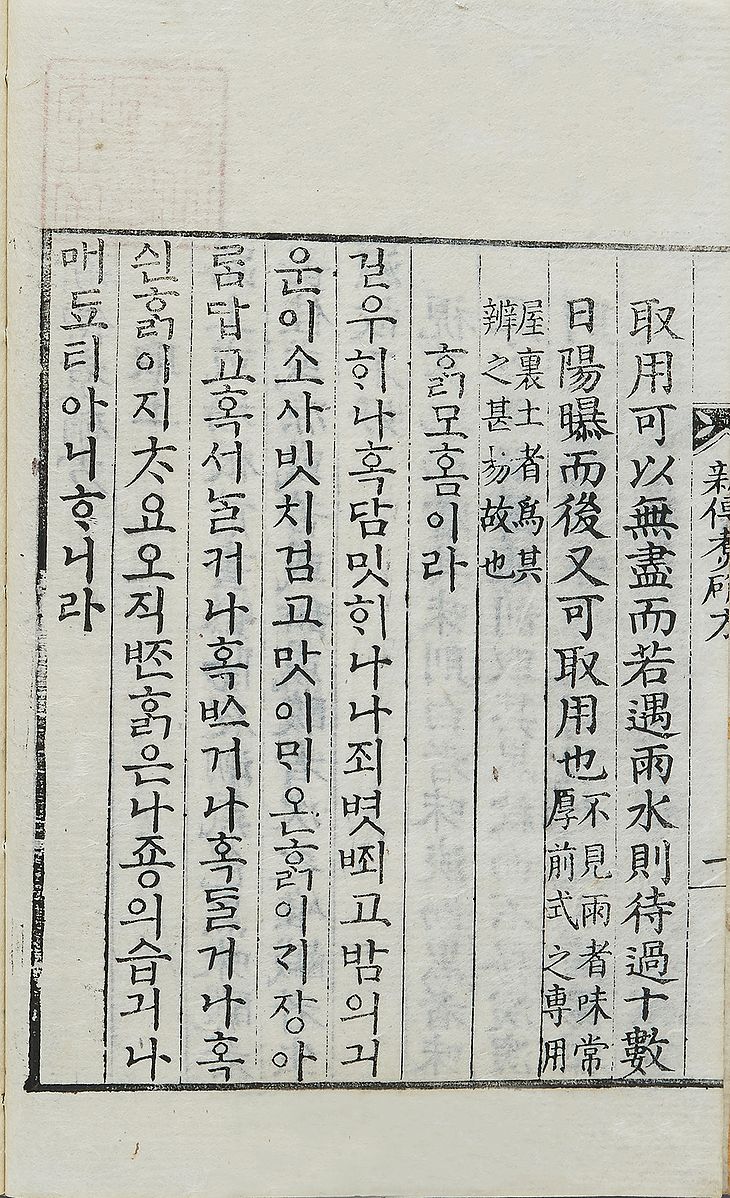 新傳煮硝方
一
取用可以無盡而若遇雨水則待過十數
日陽曝而後又可取用也
不見雨者味常
厚前式之專用
屋裏土者爲其
辨之甚昜故也
ᄒᆞᆰ모홈이라
길우ᄒᆡ나혹담밋ᄒᆡ나나죄볏ᄧᅬ고밤의긔
운이소사빗치검고맛이ᄆᆡ온ᄒᆞᆰ이ᄀᆞ장아
ᄅᆞᆷ답고혹서ᄂᆞᆯ거나혹ᄡᅳ거나혹ᄃᆞᆯ거나혹
싄ᄒᆞᆰ이지ᄎᆞ요오직ᄧᆞᆫᄒᆞᆰ은나죵의습긔나
매됴티아니ᄒᆞ니라